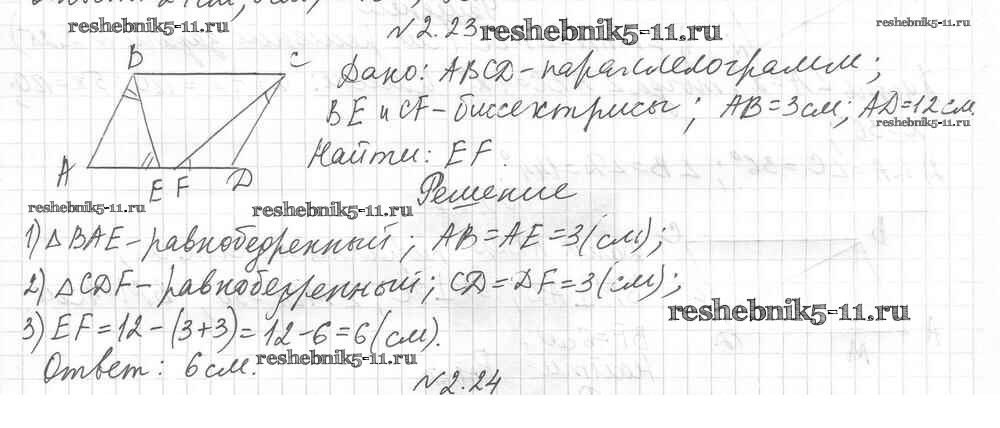 reshebnik5-11.ru
№ 2.23 reshebnik5-11.ru
reshebnik5-11.ru
B C
Дано: ABCD - параллелограмм;
BE и CF - биссектрисы; AB = 3 см; AD = 12 см.
reshebnik5-11.ru
Найти: EF.
A E F D
Решение
reshebnik5-11.ru
reshebnik5-11.ru
1) △BAE - равнобедренный; AB = AE = 3 (см);
2) △CDF - равнобедренный; CD = DF = 3 (см);
reshebnik5-11.ru
3) EF = 12 - (3+3) = 12 - 6 = 6 (см).
reshebnik5-11.ru
Ответ: 6 см.
№ 2.24